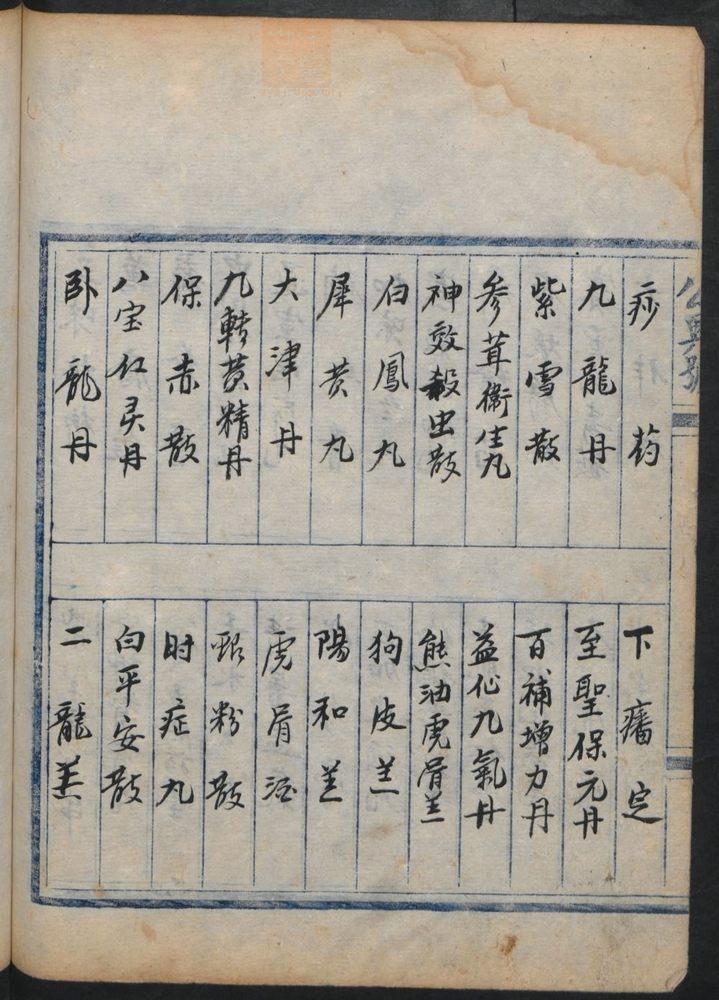 公興號
痧药
九龍丹
紫雪散
参茸衛生丸
神效殺虫散
白鳳丸
犀黄丸
大津丹
九轉黄精丹
保赤散
八宝红灵丹
卧龍丹
下 定
至聖保元丹
百補增力丹
益化九氣丹
熊油虎骨羔
狗皮羔
陽和羔
虎骨酒
銀粉散
时症丸
白平安散
二龍羔